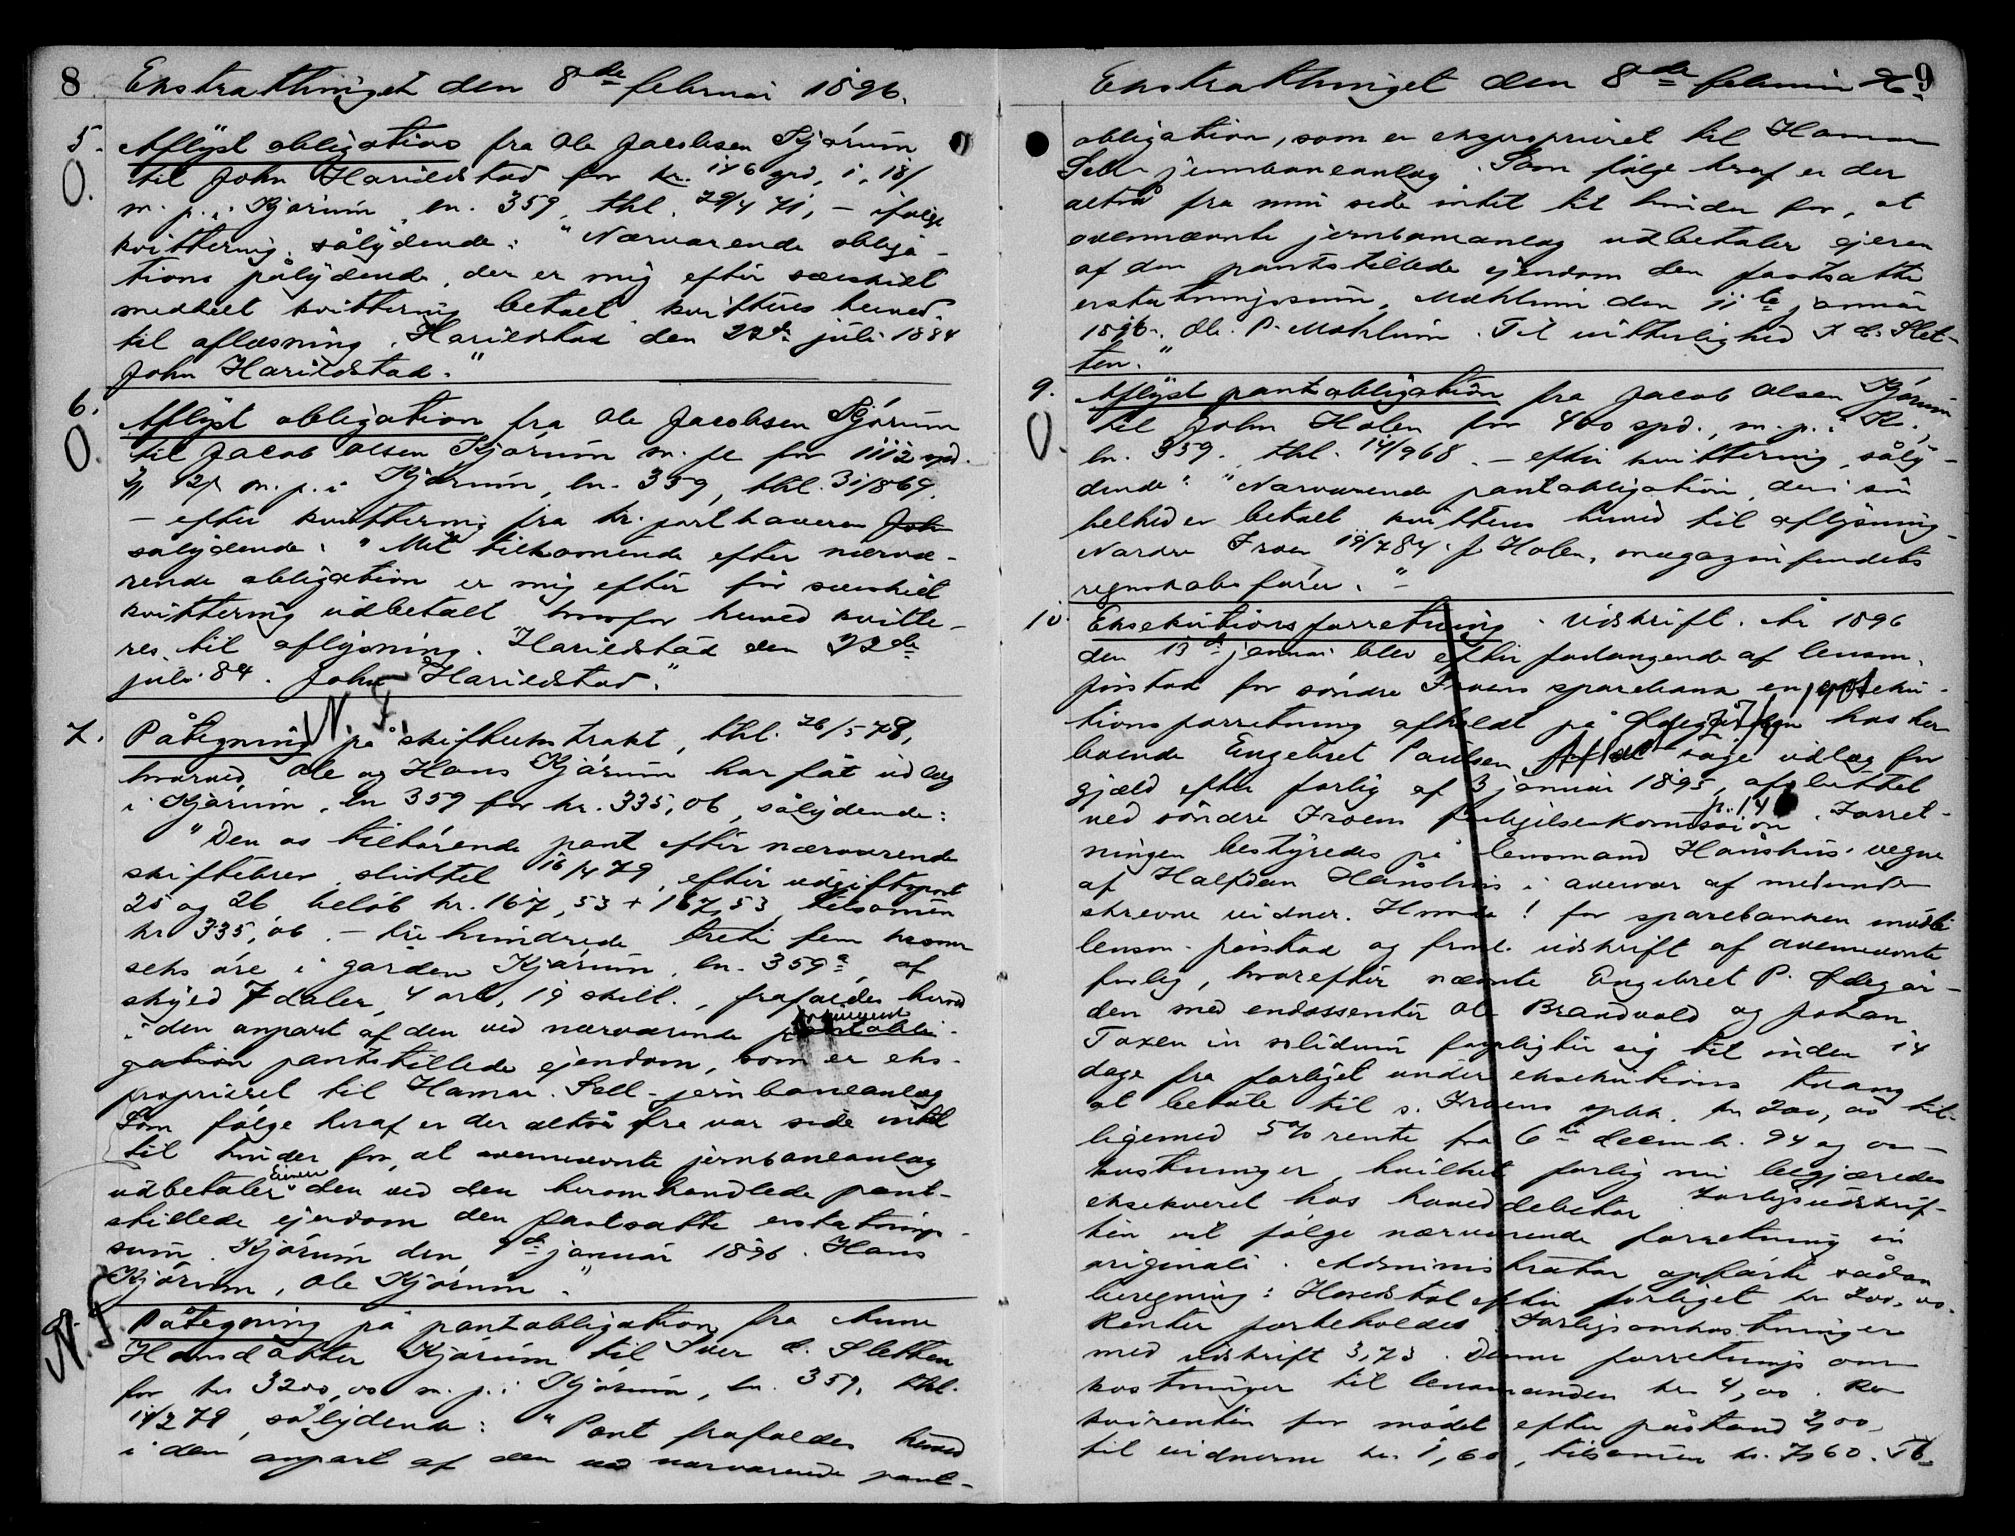 8 Ekstrathinget den 8de februar 1896.
5. Aflyst obligation fra Ole Jacobsen Kjørum
O. til John Harildstad for kr. 146 spd, i, 18/
m. p. i Kjørum, ln. 359, thl. 29/4 71, – ifølge
kvittering, sålydende: "Nærværende obliga-
tions pålydende, der er mig efter særskilt
meddelt kvittering betalt kvitteres herved
til aflæsning. Harildstad den 22de juli 1884
John Harildstad."
6. Aflyst obligation fra Ole Jacobsen Kjørum
O. til Jacob Olsen Kjørum m. fl. for 1112 spd.
m. p. i Kjørum, ln. 359, thl. 31/8 69.
– efter kvittering fra hr. parthaveren Joh
sålydende: "Mit tilkommende efter nærvæ-
rende obligation er mig efter før særskilt
kvittering udbetalt hvorfor herved kvitte-
res til aflysning. Harildstad den 22de
juli 84. John Harildstad."
N. F.
7. Påtegning på skifteekstrakt, thl. 26/5 79,
hvorved Ole og Hans Kjørum har fåt udlæg
i Kjørum, ln 359 for kr. 335,06, sålydende:
"Den os tilhørende pant efter nærværende
skiftebrev, sluttet 16/4 79, efter udgiftspost
25 og 26 beløb kr. 167,53 + 167,53 tilsamen
kr 335,06. – tre hundrede treti fem kroner
seks øre i gården Kjørum, ln. 359a, af
skyld 7 daler, 4 ort, 19 skill., frafaldes herved
i den anpart af den ved nærværende pantobli-
gation pantstillede ejendom, som er eks-
proprieret til Hamar-Sell-jernbaneanlæg
Som følge heraf er der altså fra vor side intet
til hinder for, at ovennævnte jernbaneanlæg
udbetaler Eieren den ved den heromhandlede pant-
stillede ejendom den fastsatte erstatnings-
sum. Kjørum den 9de januar 1896. Hans
Kjørum, Ole Kjørum."
N. F. Påtegning på pantobligation fra Anne
Hansdatter Kjørum til Iver L. Sletten
for kr 3200,00 m. p. i Kjørum, ln. 359, thl.
14/2 79, sålydende: "Pant frafaldes herved
i den anpart af den ved nærværende pant-
Ekstrathinget den 8de februar 96. 9
obligation, som er eksproprieret til Hamar
Sell-jernbaneanlæg. Som følge heraf er der
altså fra min side intet til hinder for, at
ovennævnte jernbaneanlæg udbetaler ejeren
af den pantstillede ejendom den fastsatte
erstatningssum, Mæhlum den 11te januar
1896. Ole P. Mæhlum. Til vitterlighed I. L. Slet-
ten."
9. Aflyst pantobligation fra Jacob Olsen Kjørum
O. til John Holen for 400 spd., m. p. i K.,
ln. 359, thl. 14/9 68. – efter kvittering, såly-
dende: "Nærværende pantobligation, der i sin
helhed er betalt kvitteres herved til aflysning –
Nordre Froen 19/7 84. J. Holen, magazinfondets
regnskabsfører."–
10. Eksekutionsforretning. Udskrift. År 1896
den 13de januar blev efter forlangende af lensm.
Jonstad for søndre Froens sparebank en ekseku-
tionsforretning afholdt på Ødegården hos her
boende Engebret Paulsen for at søge udlæg for
gjæld efter forlig af 3 januar 1895, afsluttet
ved søndre Froens forligelseskommission p. 14. Forret-
ningen bestyredes på lensmand Hanshus' vegne
af Halfdan Hanshus i overvær af medunder-
skrevne vidner. Hvorda! for sparebanken mødte
lensm. Jonstad og freml. udskrift af ovennævnte
forlig, hvorefter nævnte Engebret P. Ødegår-
den med endossenter Ole Brandvold og Johan
Toxen in solidum forpligter sig til inden 14
dage fra forliget under eksekutions tvang
at betale til s. Froens spbk. kr 200,00 til-
ligemed 5 % rente fra 6te decembr. 94 og om-
kostninger, hvilket forlig nu begjæredes
eksekveret hos hoveddebitor. Forligsudskrif-
ten vil følge nærværende forretning in
originali. Administrator opførte sådan
beregning: Hovedstol efter forliget kr 200,00.
Renter forbeholdes. Forligsomkostninger
med udskrift 3,73. Denne forretnings om-
kostninger til lensmanden kr 4,00. Re-
kvirenten for mødet efter påstand 2,00
til vidnerne kr. 1,60, tilsamen kr. 7,60.